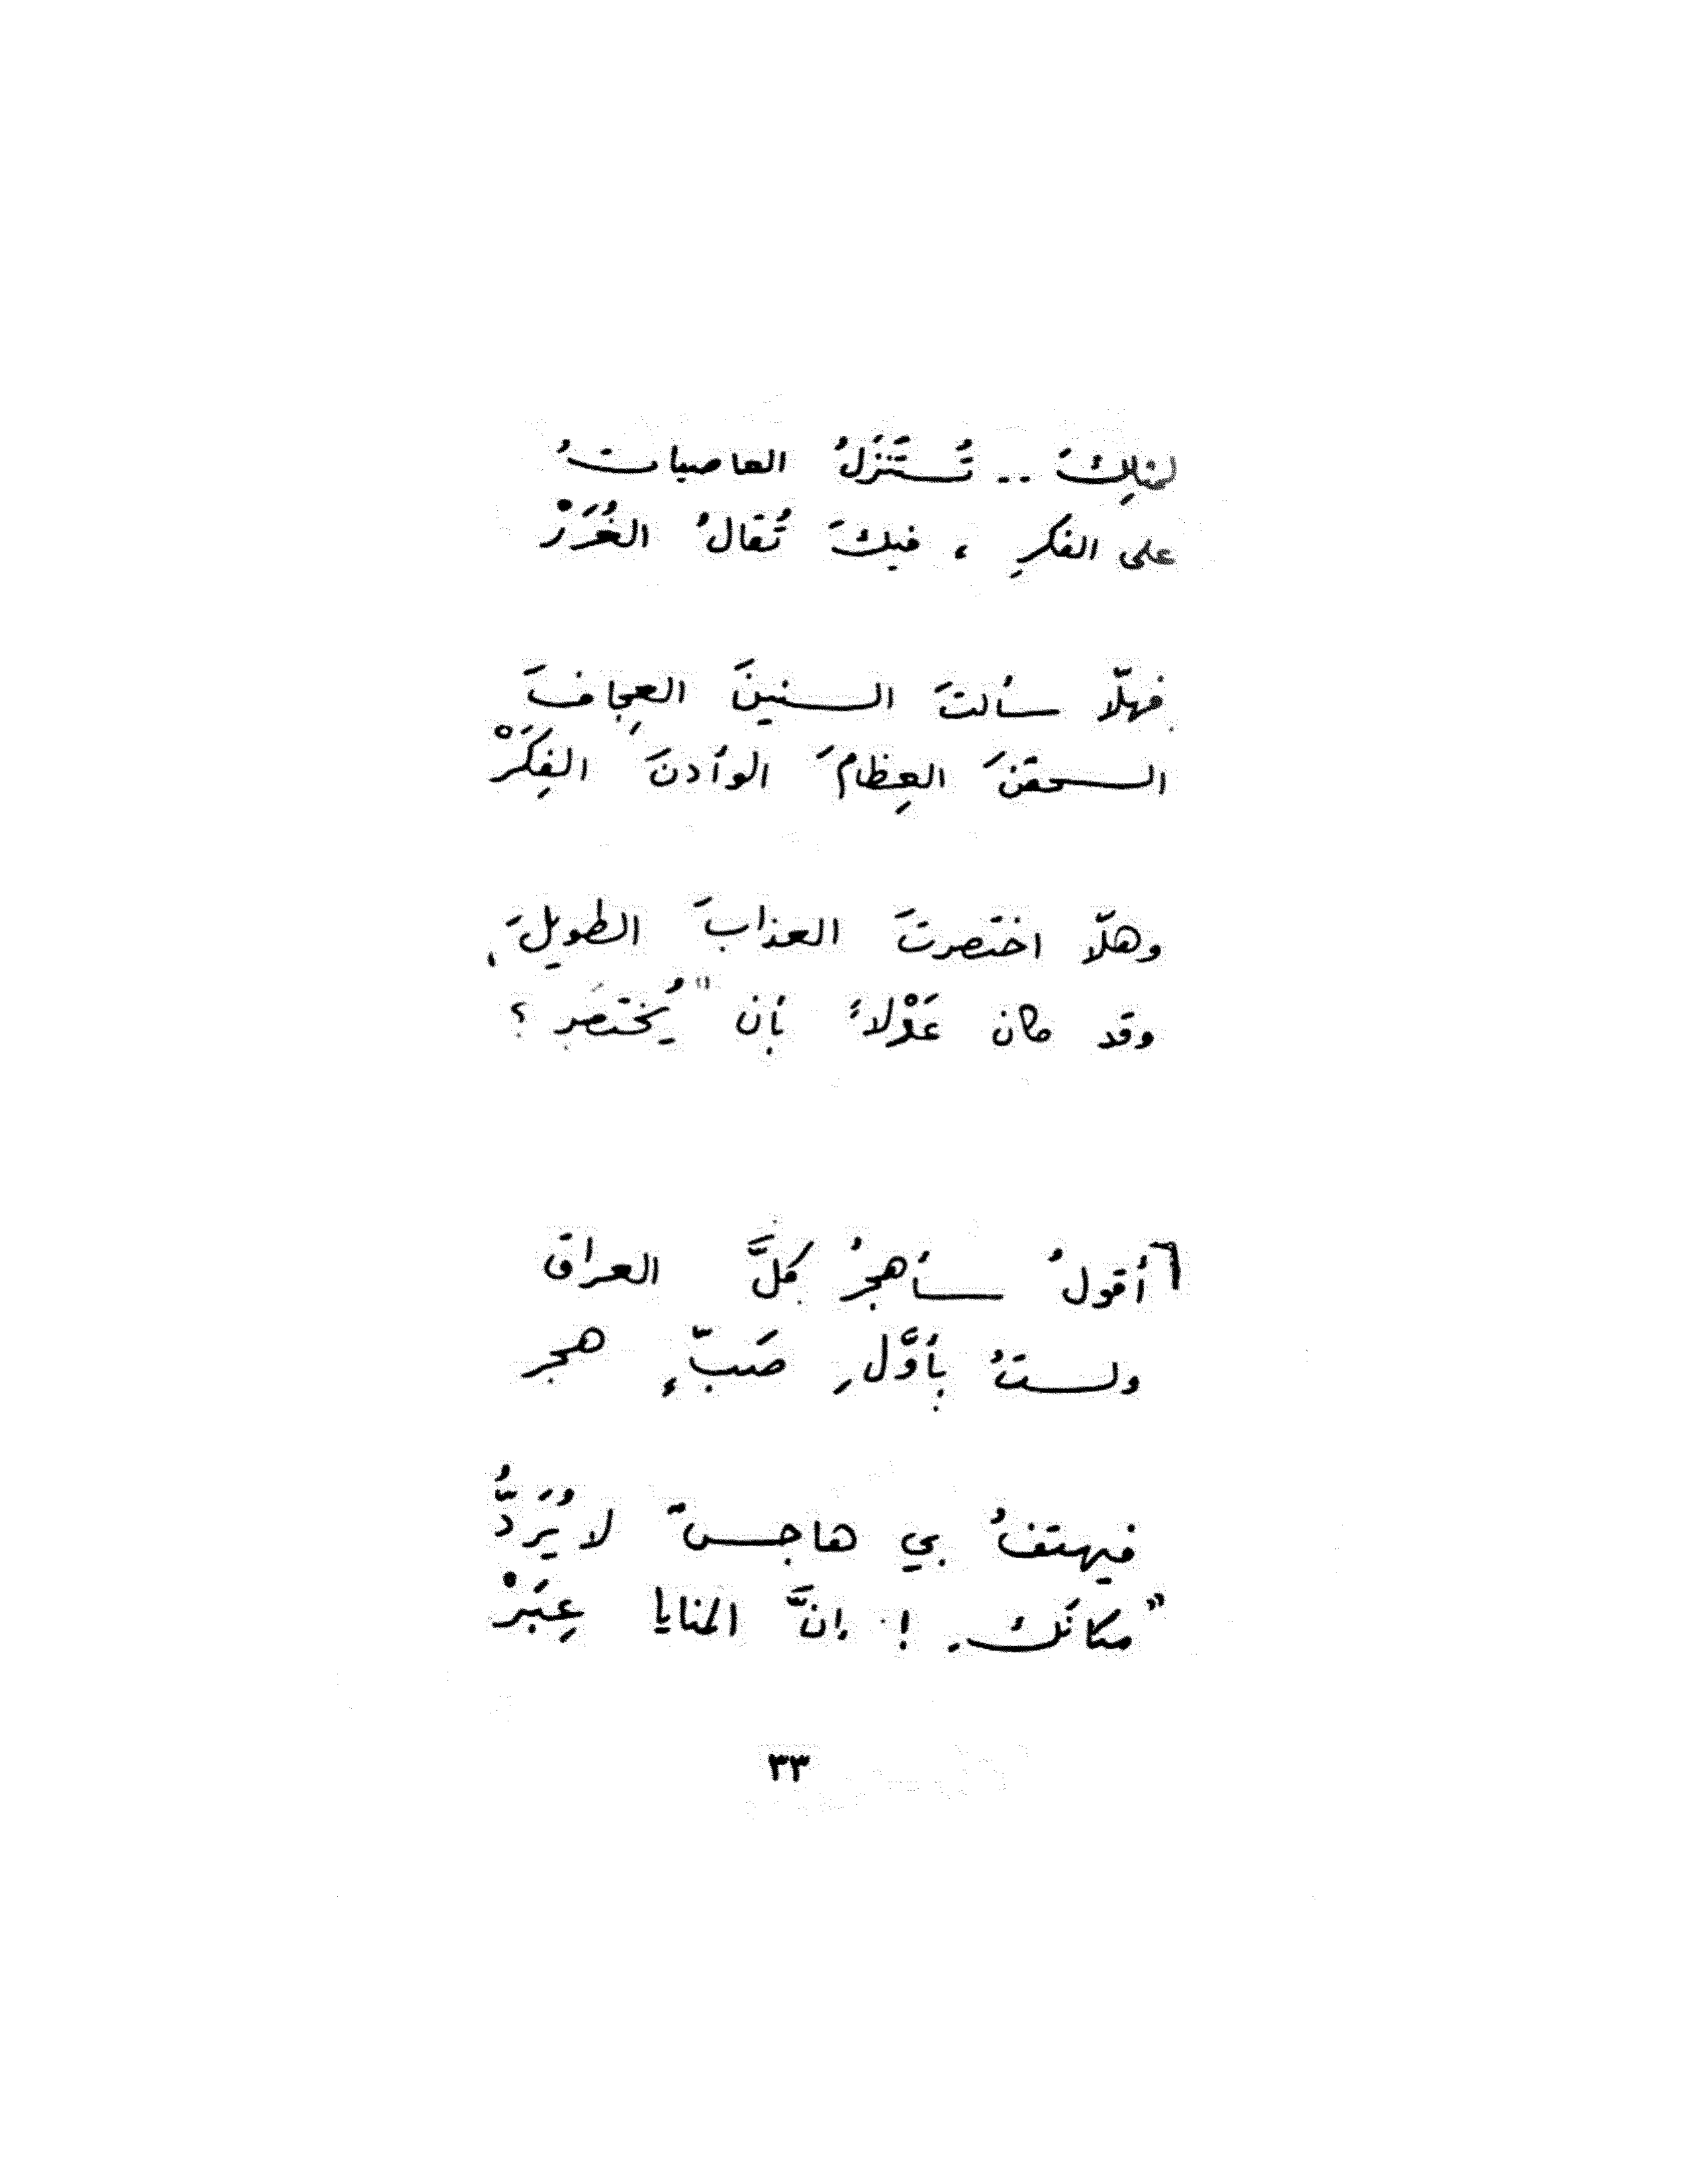 لمثلِكَ .. تُستَنزَلُ العاصياتُ
على الفكرِ ، فيكَ تُقالُ الغُرَرْ
فهلّا سألتَ السنينَ العِجافَ
السحقنَ العِظامَ الوأدنَ الفِكَرْ
وهلّا اختصرتَ العذابَ الطويلَ ،
وقد كان عَدْلاً بأن " يُختصَر ؟
أقولُ سأهجرُ كلَّ العراق
ولستُ بأوَّلِ صَبٍّ هجر
فيهتفُ بي هاجسٌ لا يُرَدُّ
" مكانَك . ! إنَّ المنايا عِبَرْ
٣٣